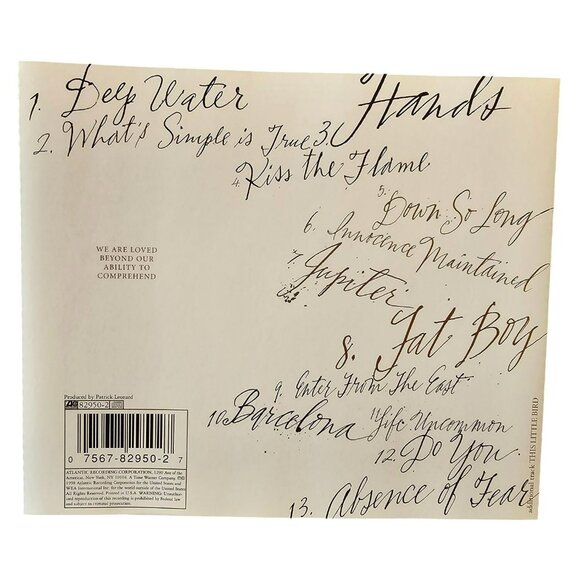 1. Deep Water
2. What's Simple is True 3. Hands
4. Kiss the Flame
5. Down So Long
6. Innocence Maintained
7. Jupiter
8. Fat Boy
9. Enter From The East
10. Barcelona 11. Life Uncommon
12. Do You
13. Absence of Fear
WE ARE LOVED
BEYOND OUR
ABILITY TO
COMPREHEND
Produced by Patrick Leonard
82950-2
0 7567-82950-2 7
ATLANTIC RECORDING CORPORATION, 1290 Ave of the
Americas, New York, NY 10104. A Time Warner Company ℗©
1998 Atlantic Recording Corporation for the United States and
WEA International Inc. for the world outside of the United States.
All Rights Reserved. Printed in U.S.A. WARNING: Unauthor-
ized reproduction of this recording is prohibited by Federal law
and subject to criminal prosecution.
additional track THIS LITTLE BIRD